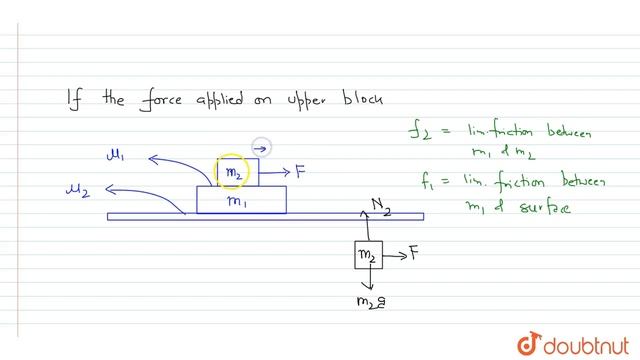 If the force applied on upper block
f2 = lim. friction between
m1 & m2
f1 = lim. friction between
m1 & surface
μ1
m2
F
μ2
m1
N2
m2
F
m2g
doubtnut